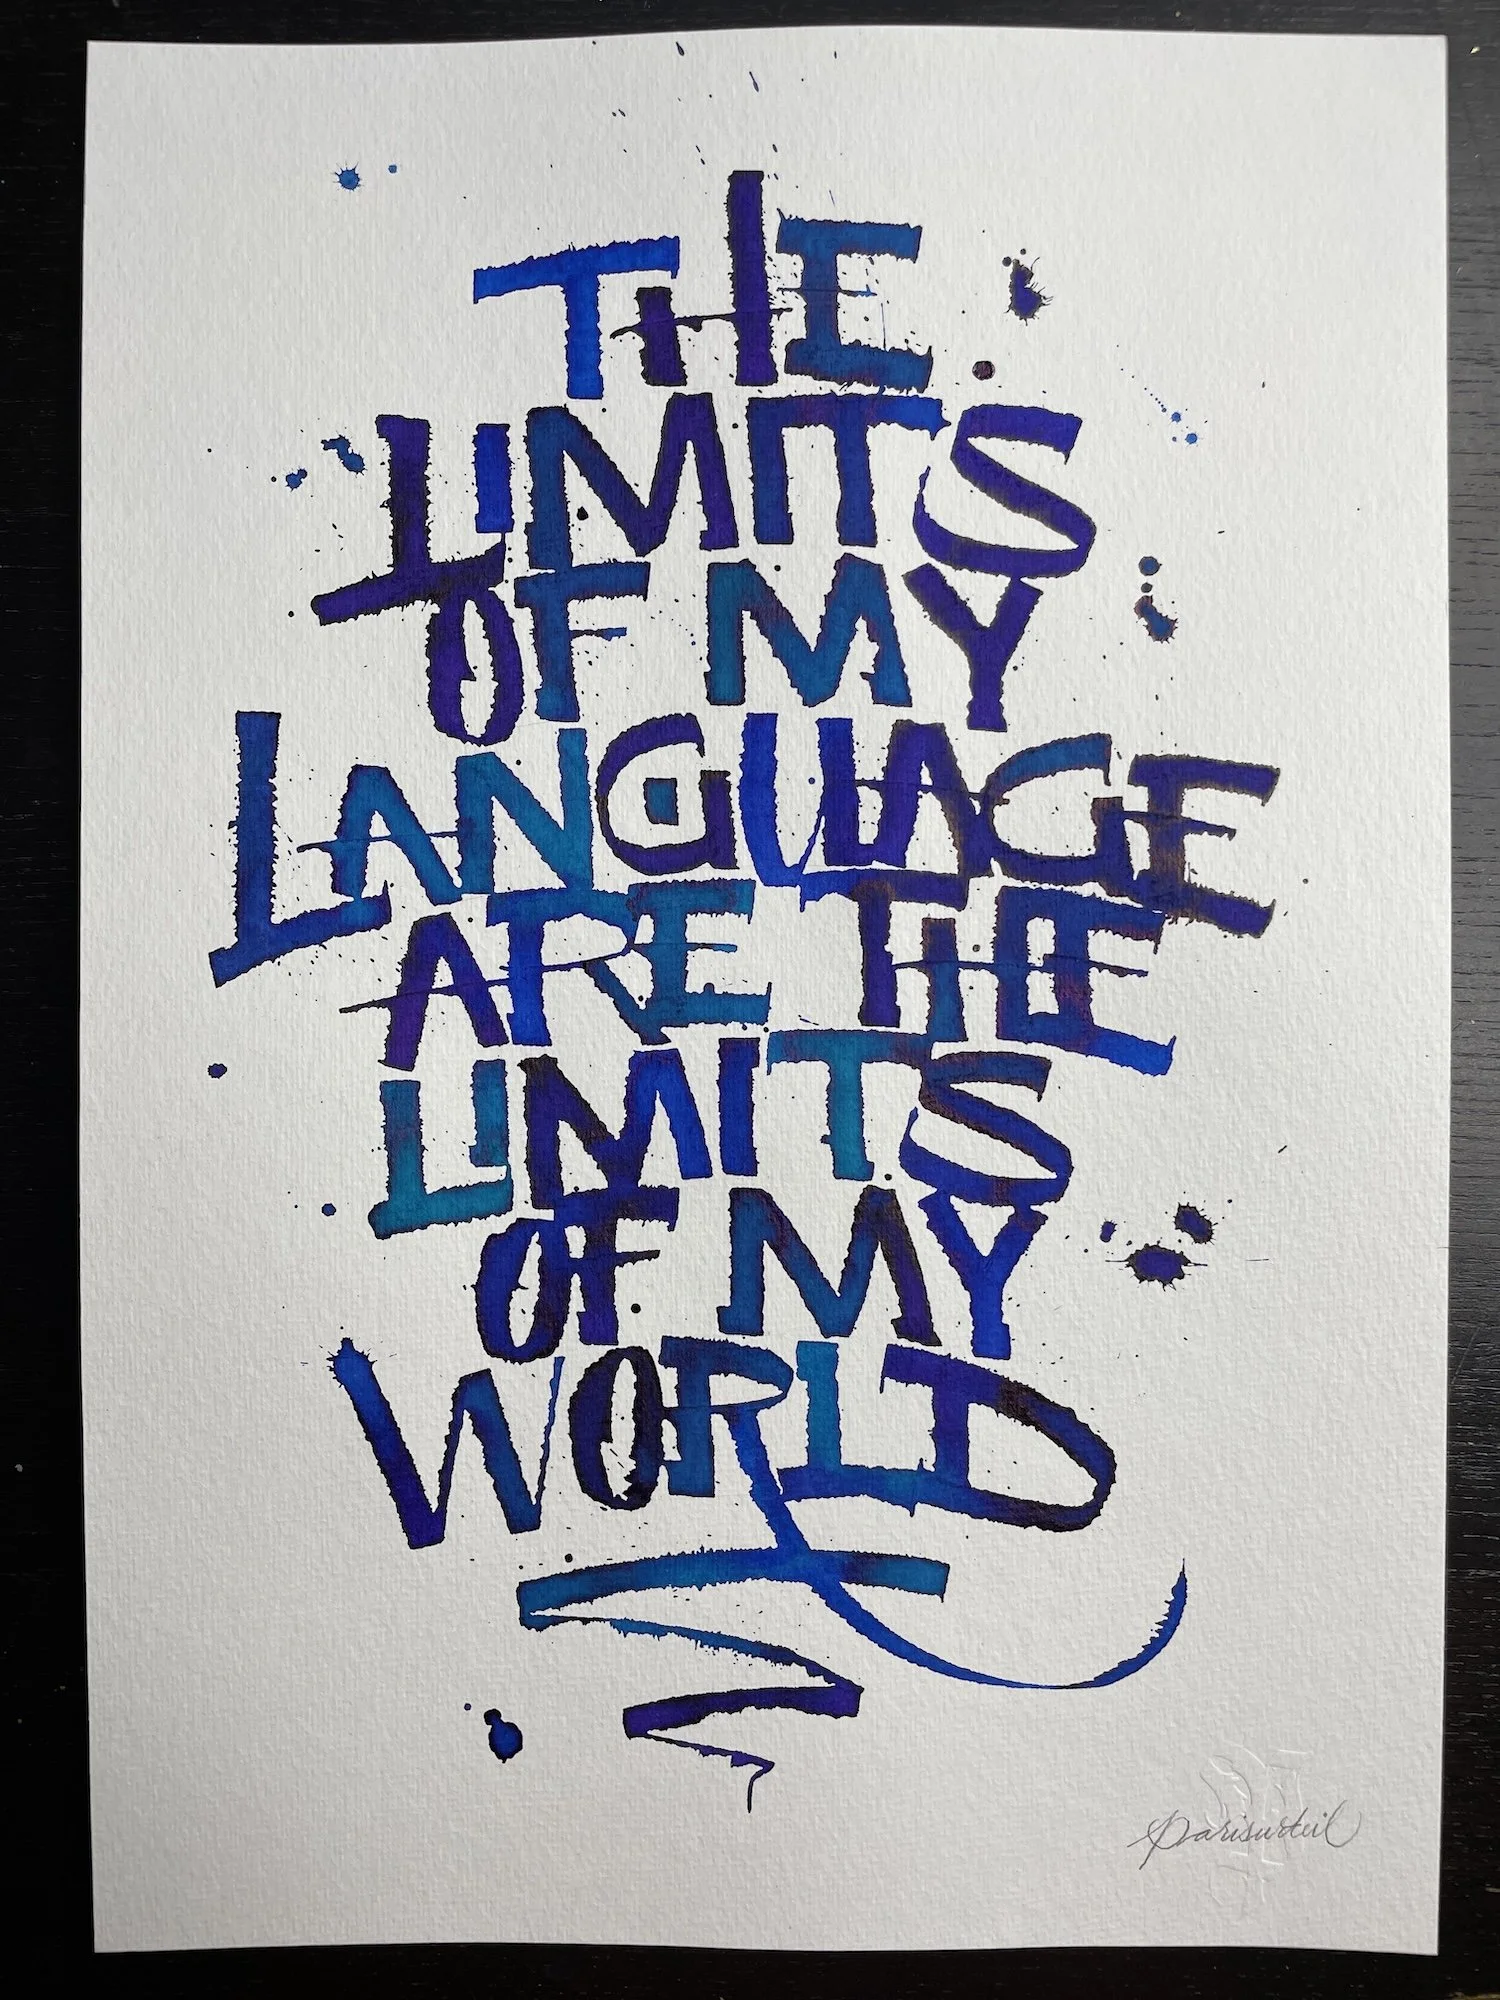 THE
LIMITS
OF MY
LANGUAGE
ARE THE
LIMITS
OF MY
WORLD